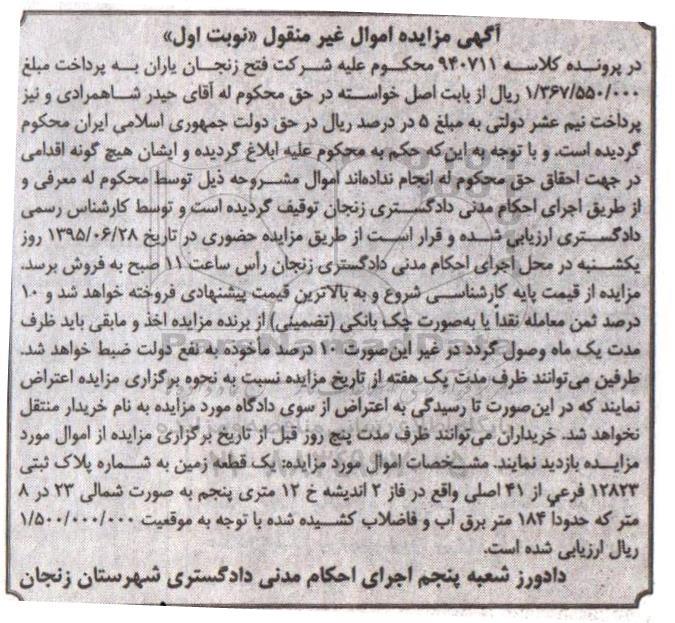 آگهی مزایده اموال غیر منقول «نوبت اول»
در پرونده کلاسه ۹۴۰۷۱۱ محکوم علیه شرکت فتح زنجان یاران به پرداخت مبلغ
۱/۳۶۷/۵۵۰/۰۰۰ ریال از بابت اصل خواسته در حق محکوم له آقای حیدر شاهمرادی و نیز
پرداخت نیم عشر دولتی به مبلغ ۵ در درصد ریال در حق دولت جمهوری اسلامی ایران محکوم
گردیده است. و با توجه به این‌که حکم به محکوم علیه ابلاغ گردیده و ایشان هیچ گونه اقدامی
در جهت احقاق حق محکوم له انجام نداده‌اند اموال مشروحه ذیل توسط محکوم له معرفی و
از طریق اجرای احکام مدنی دادگستری زنجان توقیف گردیده است و توسط کارشناس رسمی
دادگستری ارزیابی شده و قرار است از طریق مزایده حضوری در تاریخ ۱۳۹۵/۰۶/۲۸ روز
یکشنبه در محل اجرای احکام مدنی دادگستری زنجان رأس ساعت ۱۱ صبح به فروش برسد.
مزایده از قیمت پایه کارشناسی شروع و به بالاترین قیمت پیشنهادی فروخته خواهد شد و ۱۰
درصد ثمن معامله نقداً یا به‌صورت چک بانکی (تضمینی) از برنده مزایده اخذ و مابقی باید ظرف
مدت یک ماه وصول گردد در غیر این‌صورت ۱۰ درصد مأخوذه به نفع دولت ضبط خواهد شد.
طرفین می‌توانند ظرف مدت یک هفته از تاریخ مزایده نسبت به نحوه برگزاری مزایده اعتراض
نمایند که در این‌صورت تا رسیدگی به اعتراض از سوی دادگاه مورد مزایده به نام خریدار منتقل
نخواهد شد. خریداران می‌توانند ظرف مدت پنج روز قبل از تاریخ برگزاری مزایده از اموال مورد
مزایده بازدید نمایند. مشخصات اموال مورد مزایده: یک قطعه زمین به شماره پلاک ثبتی
۱۲۸۲۳ فرعی از ۴۱ اصلی واقع در فاز ۲ اندیشه خ ۱۲ متری پنجم به صورت شمالی ۲۳ در ۸
متر که حدودا ۱۸۴ متر برق آب و فاضلاب کشیده شده با توجه به موقعیت ۱/۵۰۰/۰۰۰/۰۰۰
ریال ارزیابی شده است.
دادورز شعبه پنجم اجرای احکام مدنی دادگستری شهرستان زنجان
ParsNamadData